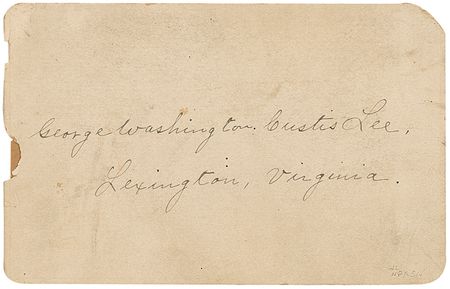 George Washington Custis Lee,
Lexington, Virginia.